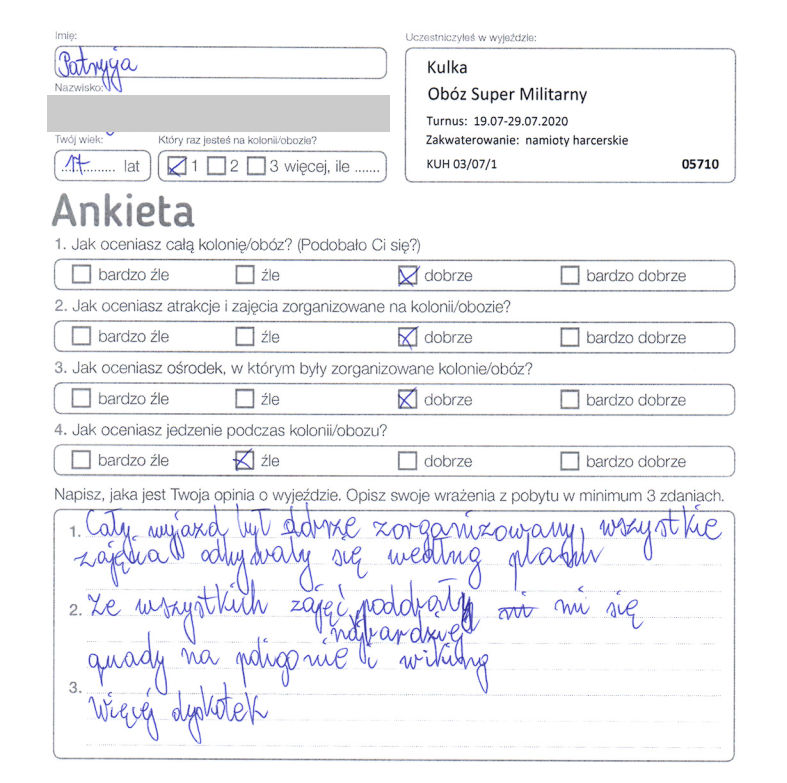 Imię:
Patrycja
Nazwisko:
Twój wiek:
17 lat
Który raz jesteś na kolonii/obozie?
1 2 3 więcej, ile .......
Uczestniczyłeś w wyjeździe:
Kulka
Obóz Super Militarny
Turnus: 19.07-29.07.2020
Zakwaterowanie: namioty harcerskie
KUH 03/07/1 05710
Ankieta
1. Jak oceniasz całą kolonię/obóz? (Podobało Ci się?)
bardzo źle źle dobrze bardzo dobrze
2. Jak oceniasz atrakcje i zajęcia zorganizowane na kolonii/obozie?
bardzo źle źle dobrze bardzo dobrze
3. Jak oceniasz ośrodek, w którym były zorganizowane kolonie/obóz?
bardzo źle źle dobrze bardzo dobrze
4. Jak oceniasz jedzenie podczas kolonii/obozu?
bardzo źle źle dobrze bardzo dobrze
Napisz, jaka jest Twoja opinia o wyjeździe. Opisz swoje wrażenia z pobytu w minimum 3 zdaniach.
1. Cały wyjazd był dobrze zorganizowany, wszystkie
zajęcia odbywały się według planu
2. Ze wszystkich zajęć podobały mi się
najbardziej
quady na poligonie i
3.
Więcej dyskotek